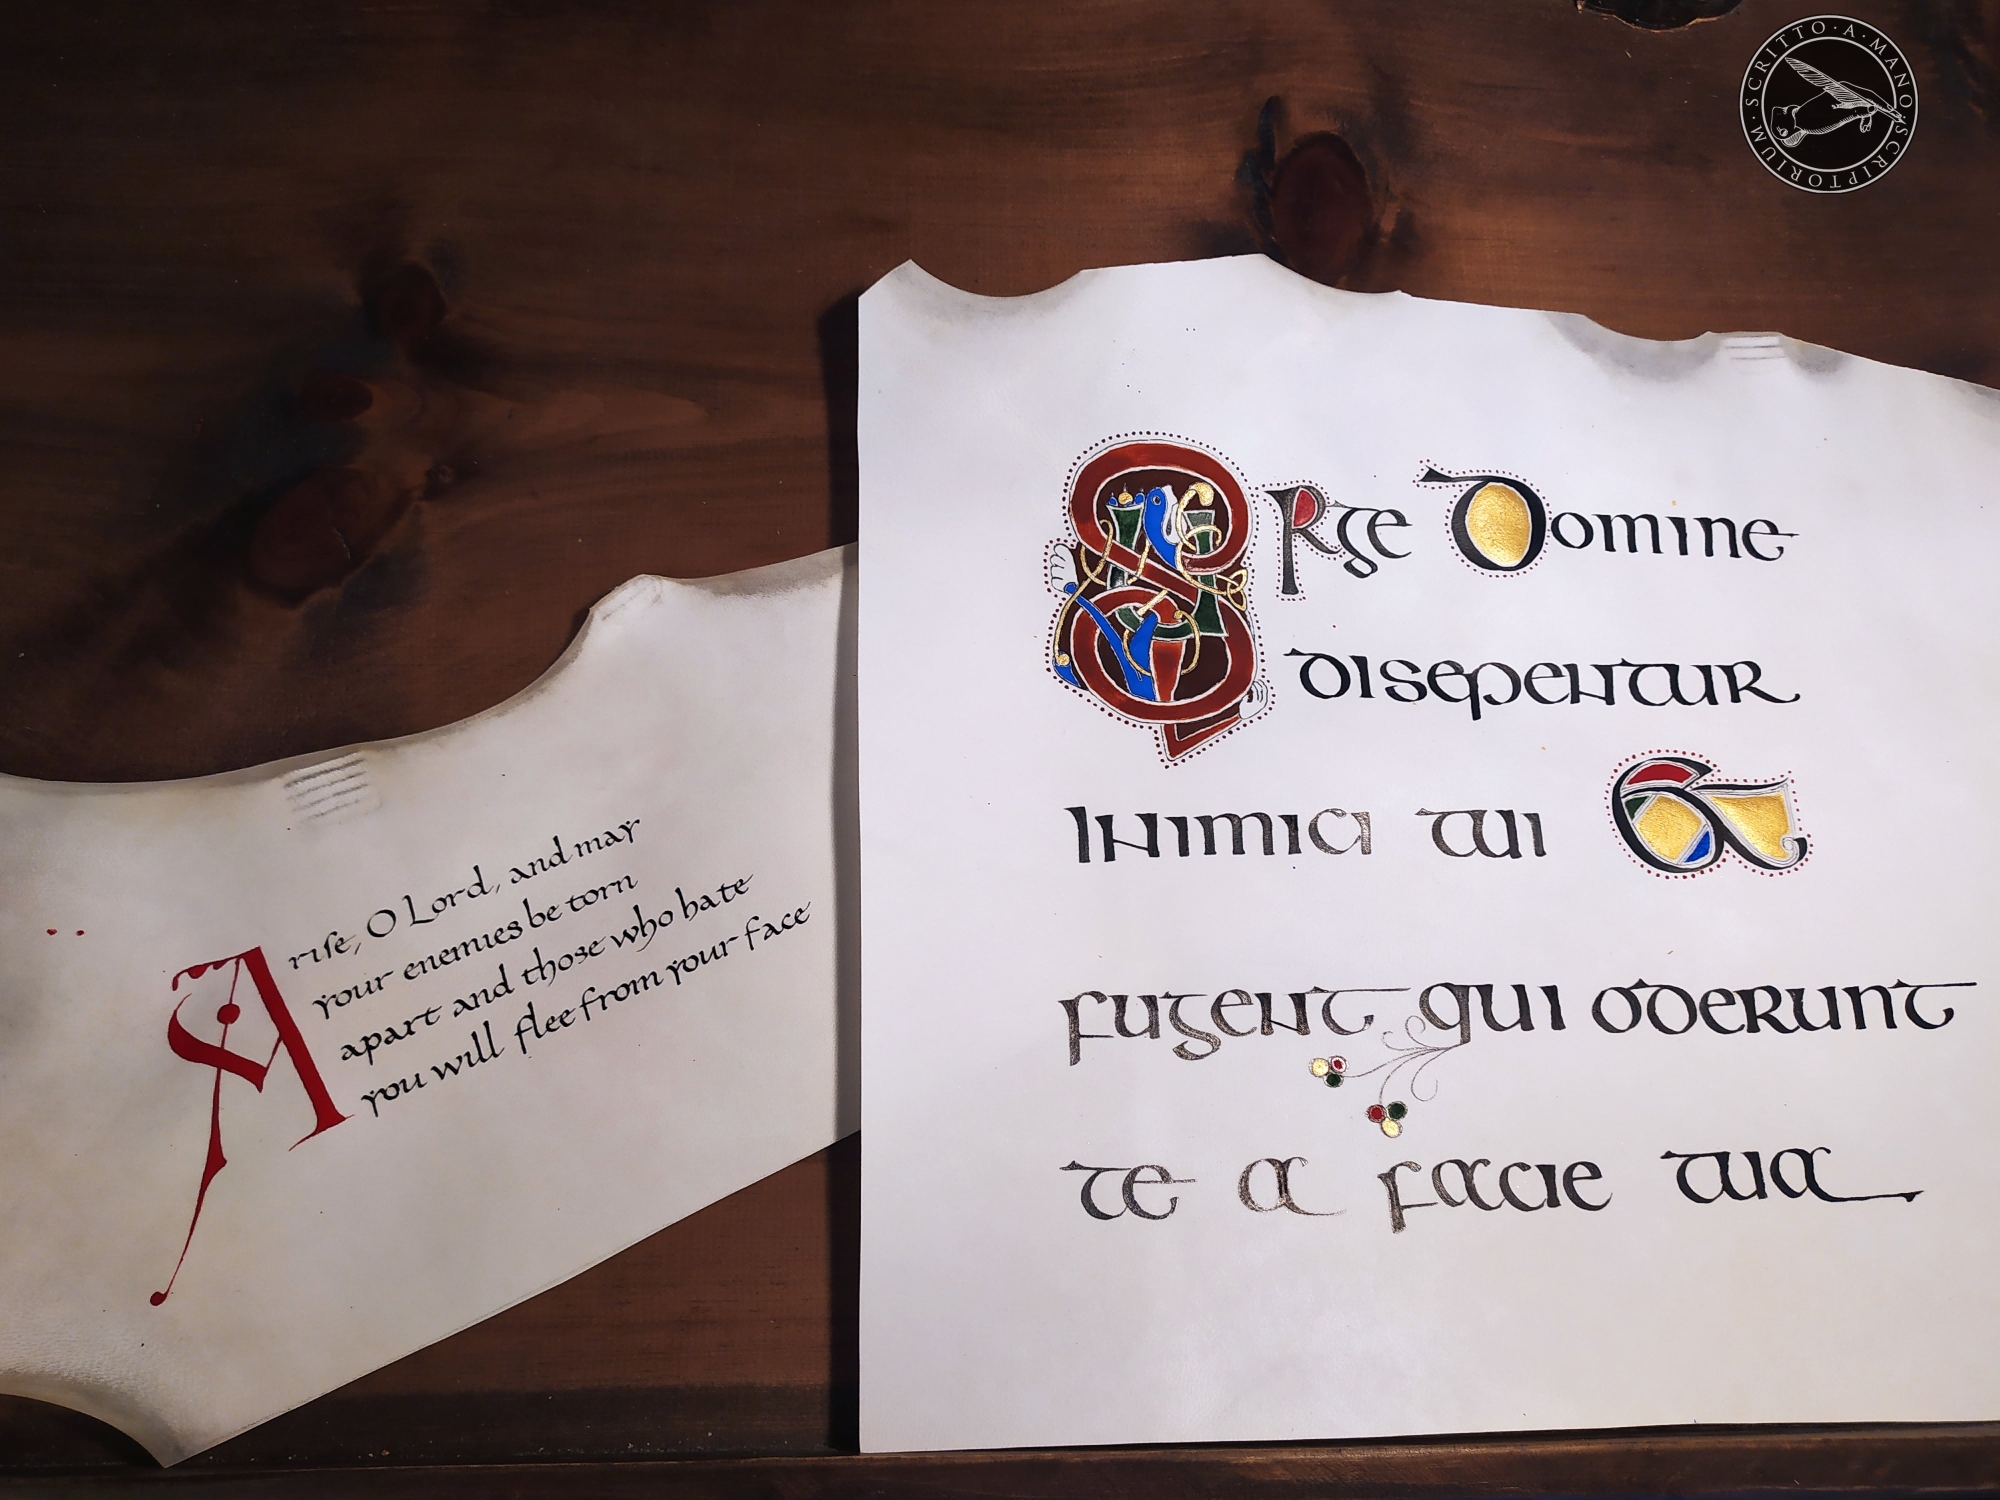 SCRITTO · A · MANO · SCRIPTORIUM ·
Arise, O Lord, and may
your enemies be torn
apart and those who hate
you will flee from your face
SURge Domine
disepentuR
inimici tui Et
fugent qui odeRunt
te a facie tua